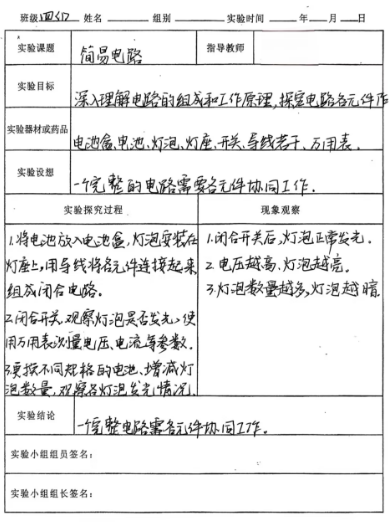 班级 四(2) 姓名 组别 实验时间 年 月 日
实验课题 简易电路 指导教师
实验目标 深入理解电路的组成和工作原理,探究电路各元件作
实验器材或药品 电池盒、电池、灯泡、灯座、开关、导线若干、万用表.
实验设想 一个完整的电路需要各元件协同工作.
实验探究过程
1.将电池放入电池盒,灯泡安装在
灯座上,用导线将各元件连接起来
组成闭合电路.
2.闭合开关,观察灯泡是否发光,使
用万用表测量电压、电流等参数.
3.更换不同规格的电池、增减灯
泡数量,观察各灯泡发光情况.
现象观察
1.闭合开关后,灯泡正常发光.
2.电压越高,灯泡越亮.
3.灯泡数量越多,灯泡越暗.
实验结论 一个完整电路需各元件协同工作.
实验小组组员签名:
实验小组组长签名: